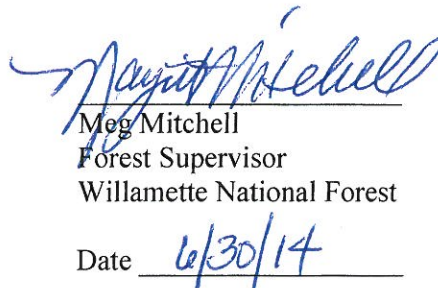 Mitchell
Meg Mitchell
Forest Supervisor
Willamette National Forest
Date 6/30/14